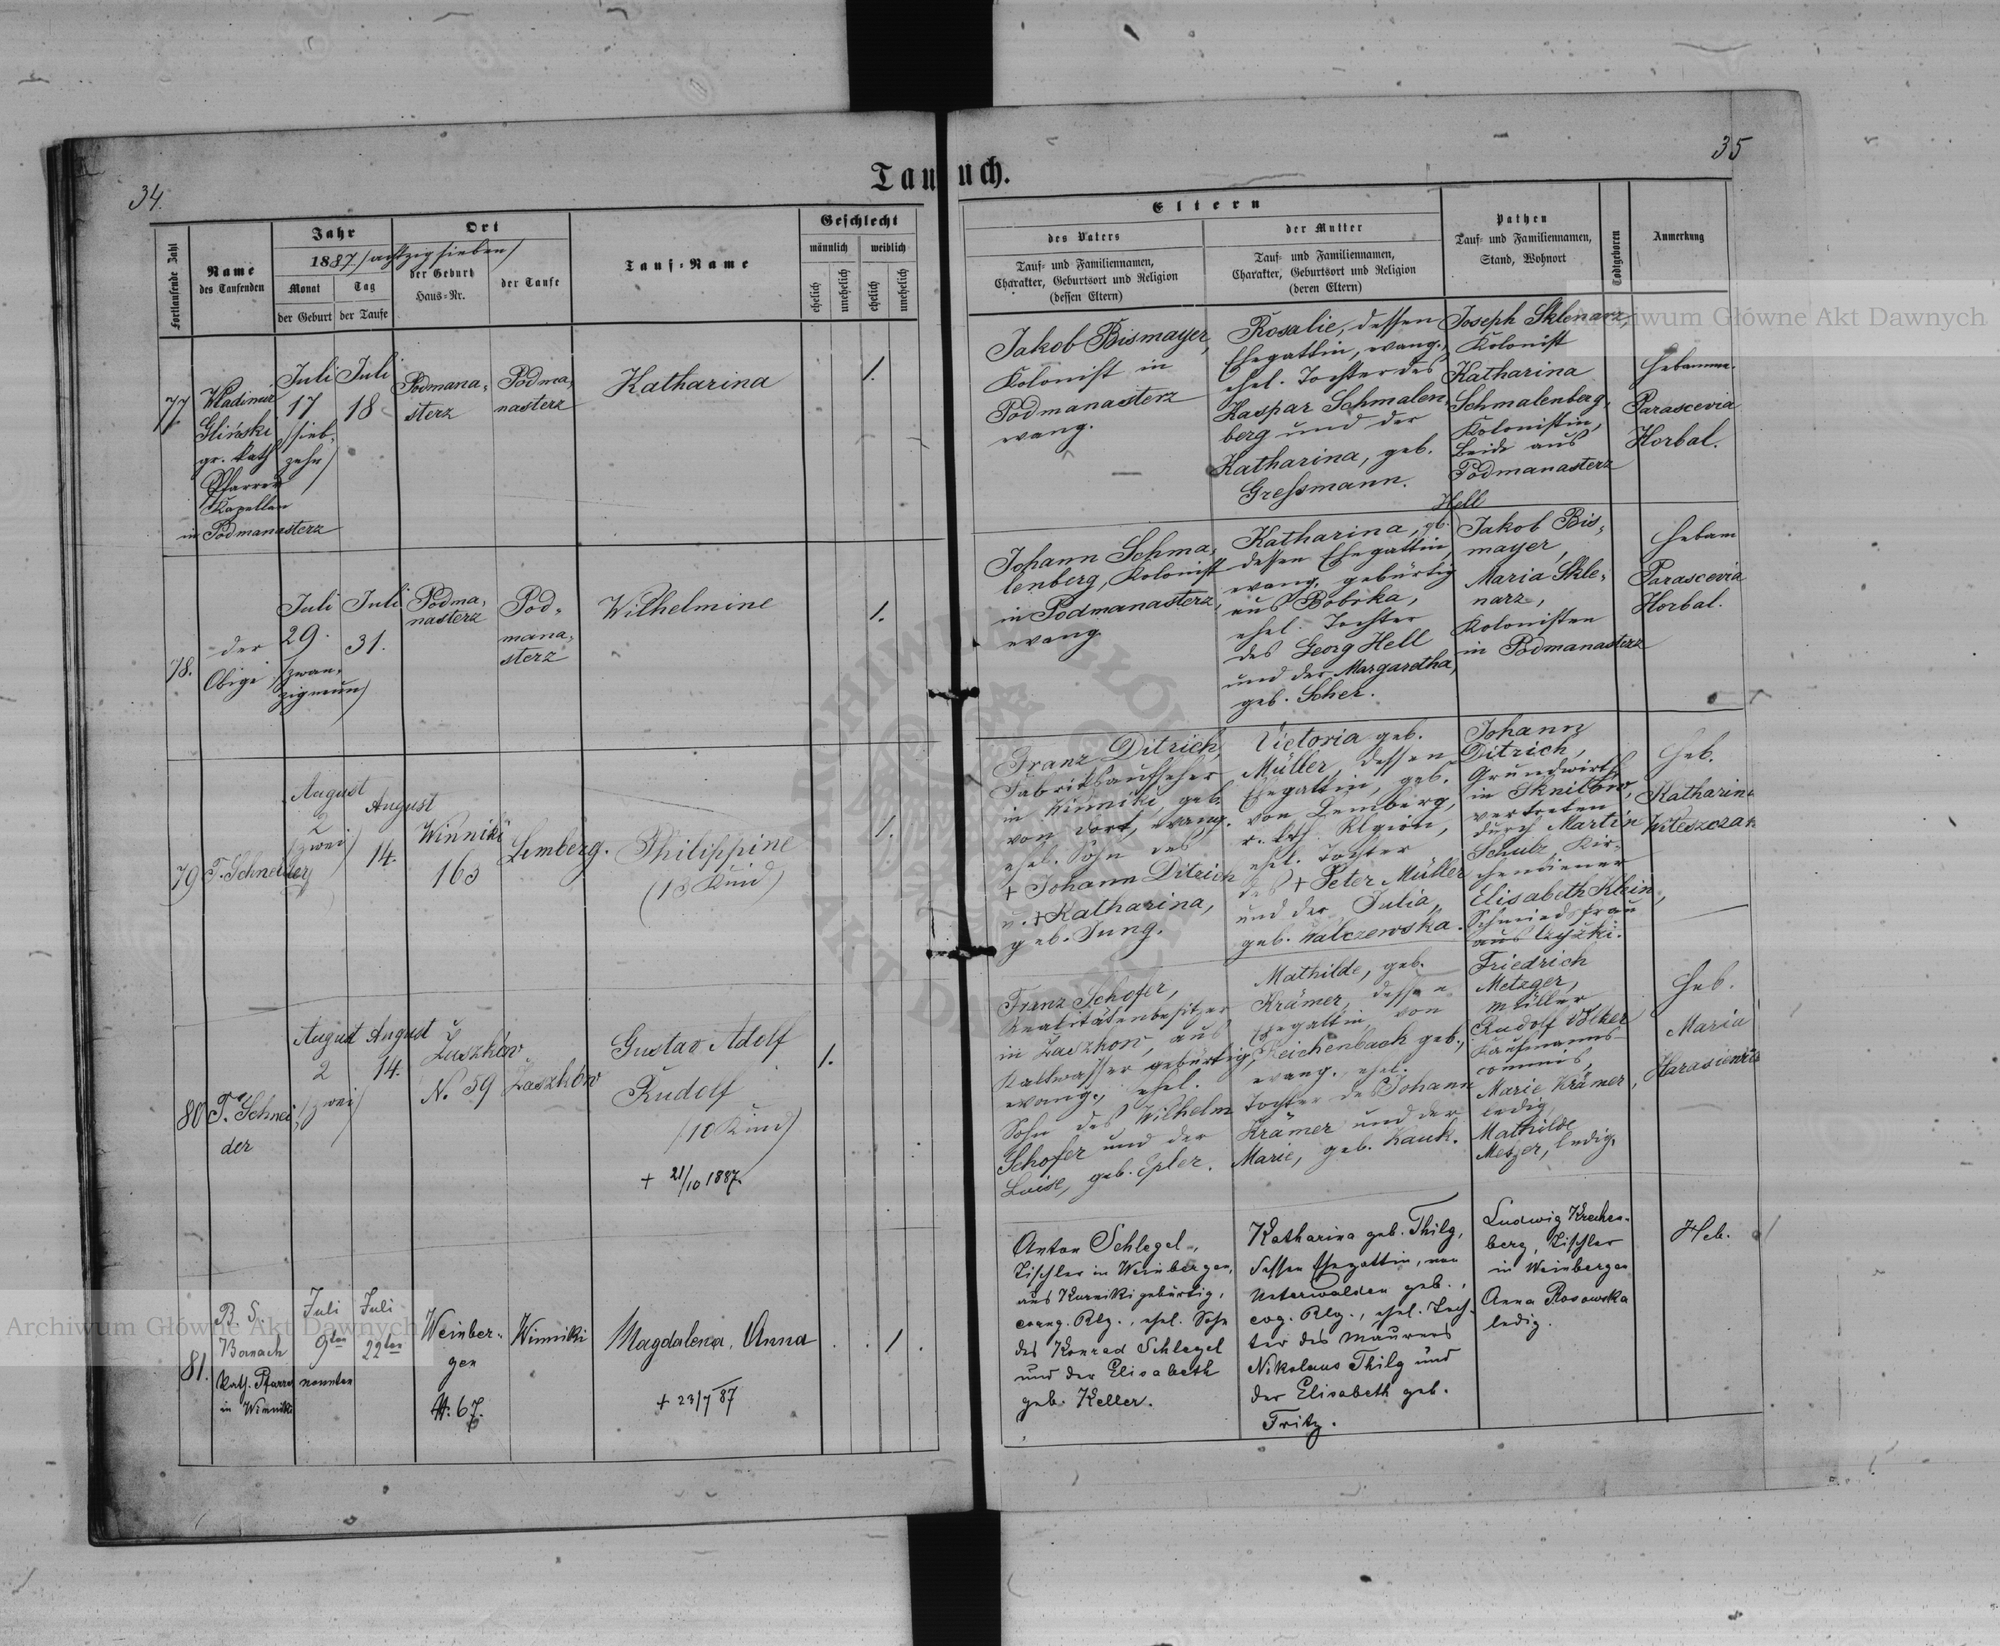 34.
35
Tau
uch.
Fortlaufende Zahl
Name
des Taufenden
Jahr
1887 /achtzigsieben/
Monat
Tag
der Geburt
der Taufe
Ort
der Geburt
Haus-Nr.
der Taufe
Tauf-Name
Geschlecht
männlich
weiblich
ehelich
unehelich
ehelich
unehelich
Eltern
des Vaters
Tauf- und Familiennamen,
Charakter, Geburtsort und Religion
(dessen Eltern)
der Mutter
Tauf- und Familiennamen,
Charakter, Geburtsort und Religion
(deren Eltern)
Pathen
Tauf- und Familiennamen,
Stand, Wohnort
Todtgeboren
Anmerkung
77
Wladimir
Gliński
gr. kath
Pfarrer
Kapellan
in Podmanasterz
Juli
17
/sieb-
zehn/
Juli
18
Podmana-
sterz
Podma-
nasterz
Katharina
1.
Jakob Bismayer,
Kolonist in
Podmanasterz
evang.
Rosalie, dessen
Ehegattin, evang.,
ehel. Tochter des
Kaspar Schmalen-
berg und der
Katharina, geb.
Gressmann.
Joseph Sklenarz,
Kolonist
Katharina
Schmalenberg,
Kolonistin,
Beide aus
Podmanasterz
Hebamme.
Parascevia
Horbal.
78.
der
Obige
Juli
29.
/zwan-
zigneun/
Juli
31.
Podma-
nasterz
Pod-
mana-
sterz
Wilhelmine
1.
Johann Schma-
lenberg, Kolonist
in Podmanasterz,
evang.
Hell
Katharina, gb.
dessen Ehegattin,
evang. gebürtig
aus Bobrka,
ehel. Tochter
des Georg Hell
und der Margaretha,
geb. Scher.
Jakob Bis-
mayer,
Maria Skle-
narz,
Kolonisten
in Podmanasterz
Hebam
Parascevia
Horbal.
79
T. Schneider
August
2
/zwei/
August
14.
Winniki
163
Lemberg.
Philippine
(13 Kind)
1.
Franz Ditrich,
Fabriksaufseher
in Winniki, geb.
von dort, evang.
ehel. Sohn des
+ Johann Ditrich
u. + Katharina,
geb. Jung.
Victoria geb.
Müller, dessen
Ehegattin, geb.
von Lemberg,
r. kth. Rlgion,
ehl. Tochter
des + Peter Müller
und der Julia,
geb. Walczewska.
Johann
Ditrich,
Grundwirth
in Sknilow,
vertreten
durch Martin
Schulz, Kir-
chendiener
Elisabeth Klein,
Schmiedsfrau
aus Czyżki.
Heb.
Katharina
Witeszczak
80
T. Schnei-
der
August
2
/zwei/
August
14.
Laszków
N. 59
Laszków
Gustav Adolf
Rudolf
(10 Kind)
+ 21/10 1887.
1.
Franz Schofer,
Realitätenbesitzer
in Laszkow, aus
Kaltwasser gebürtig,
evang., ehel.
Sohn des Wilhelm
Schofer und der
Luise, geb. Epler.
Mathilde, geb.
Krämer, dessen
Ehegattin, von
Reichenbach geb.,
evang. ehel.
Tochter des Johann
Krämer und der
Marie, geb. Kauk.
Friedrich
Metzger,
Müller
Rudolf Völker
Kaufmanns-
commis,
Marie Krämer,
ledig
Mathilde
Mezger, ledig.
Geb.
Maria
Harasiewicz
81.
B. S.
Banach
kath. Pfarrer
in Winniki
Juli
9ten
neunten
Juli
22ten
Weinber-
gen
N. 67.
Winniki
Magdalena, Anna
+ 23/7 87
1.
Anton Schlegel,
Tischler in Weinbergen,
aus Kurniki gebürtig,
evang. Rlg., ehel. Sohn
des Konrad Schlegel
und der Elisabeth
geb. Keller.
Katharina geb. Thilg,
dessen Ehegattin, von
Unterwalden geb.,
evg. Rlg., ehel. Toch-
ter des Maurers
Nikolaus Thilg und
der Elisabeth geb.
Fritz.
Ludwig Krechen-
berg, Tischler
in Weinbergen
Anna Rosowska
ledig.
Heb.
Archiwum Główne Akt Dawnych
Archiwum Główne Akt Dawnych